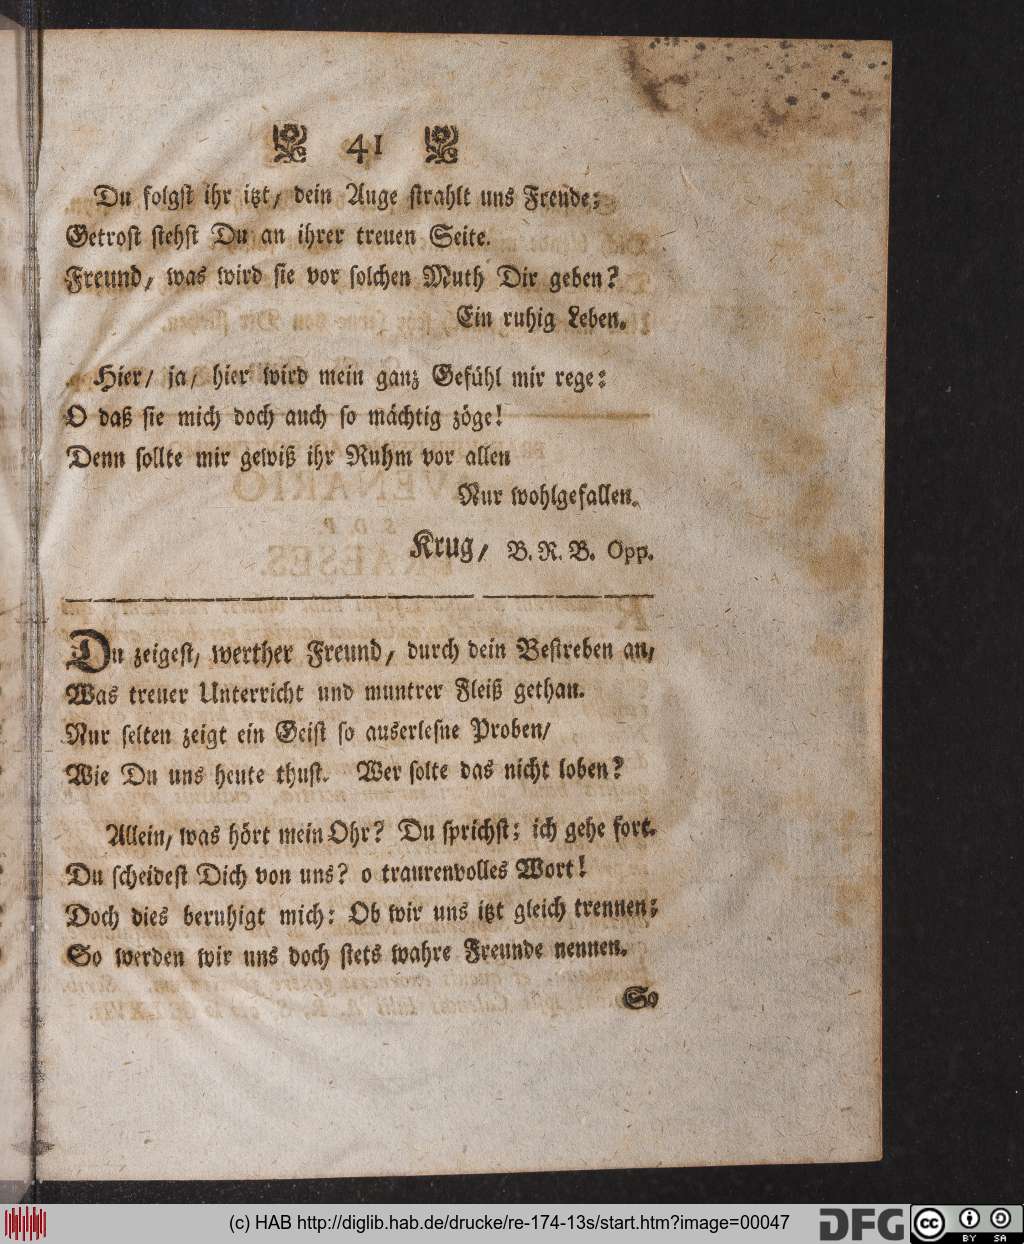 41
Du folgst ihr itzt, dein Auge strahlt uns Freude;
Getrost stehst Du an ihrer treuen Seite.
Freund, was wird sie vor solchen Muth Dir geben?
Ein ruhig Leben.
Hier, ja, hier wird mein ganz Gefühl mir rege:
O daß sie mich doch auch so mächtig zöge!
Denn sollte mir gewiß ihr Ruhm vor allen
Nur wohlgefallen.
Krug, B. R. B. Opp.
Du zeigest, werther Freund, durch dein Bestreben an,
Was treuer Unterricht und muntrer Fleiß gethan.
Nur selten zeigt ein Geist so auserlesne Proben,
Wie Du uns heute thust. Wer solte das nicht loben?
Allein, was hört mein Ohr? Du sprichst: ich gehe fort.
Du scheidest Dich von uns? o traurenvolles Wort!
Doch dies beruhigt mich: Ob wir uns itzt gleich trennen;
So werden wir uns doch stets wahre Freunde nennen.
So
(c) HAB http://diglib.hab.de/drucke/re-174-13s/start.htm?image=00047
DFG
cc
BY SA